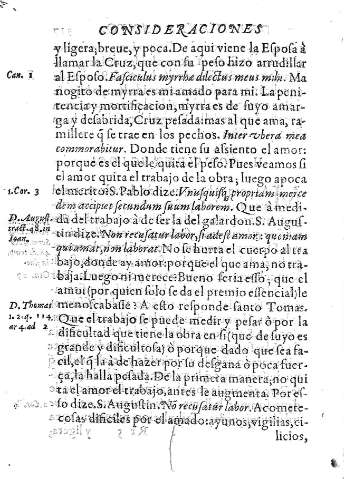 CONSIDERACIONES
y ligera, breue, y poca. De aqui viene la Esposa à
llamar la Cruz, que con su peso hizo arrudillar
Can. 1
al Esposo. Fasciculus myrrhæ dilectus meus mihi. Ma
nogito de myrra es mi amado para mi. La peni-
tencia y mortificacion, myrra es de suyo amar-
ga y desabrida, Cruz pesada: mas al que ama, ra-
millete q̃ se trae en los pechos. Inter vbera mea
commorabitur. Donde tiene su assiento el amor:
porque es el que le quita el peso. Pues veamos si
el amor quita el trabajo de la obra; luego apoca
1. Cor. 3
el merito? S. Pablo dize. Vnusquisq; propriam merce
dem accipiet secundum suum laborem. Que à medi-
D. August.
da del trabajo à de ser la del galardon. S. Augus-
tract. 48. in
Ioan.
tin dize. Non recusatur labor, si adest amor: quoniam
qui amat, non laborat. No se hurta el cuerpo al tra
bajo, donde ay amor: porque el que ama, no tra-
baja. Luego ni merece? Bueno seria esso; que el
amor (por quien solo se da el premio essencial) le
D. Thomas
menoscabasse? A esto responde santo Tomas.
1. 2. q. 114.
ar 4. ad 2.
Que el trabajo se puede medir y pesar ò por la
dificultad que tiene la obra en si (que de suyo es
grande y dificultosa) ò porque dado que sea fa-
cil, el q̃ la à de hazer por su desgana ò poca fuer-
ça, la halla pesada. De la primera manera, no qui
ta el amor el trabajo, antes le augmenta. Por es-
so dize. S. Augustin. No recusatur labor. Acomete-
cosas dificiles por el amado: ayunos, vigilias, ci-
licios,